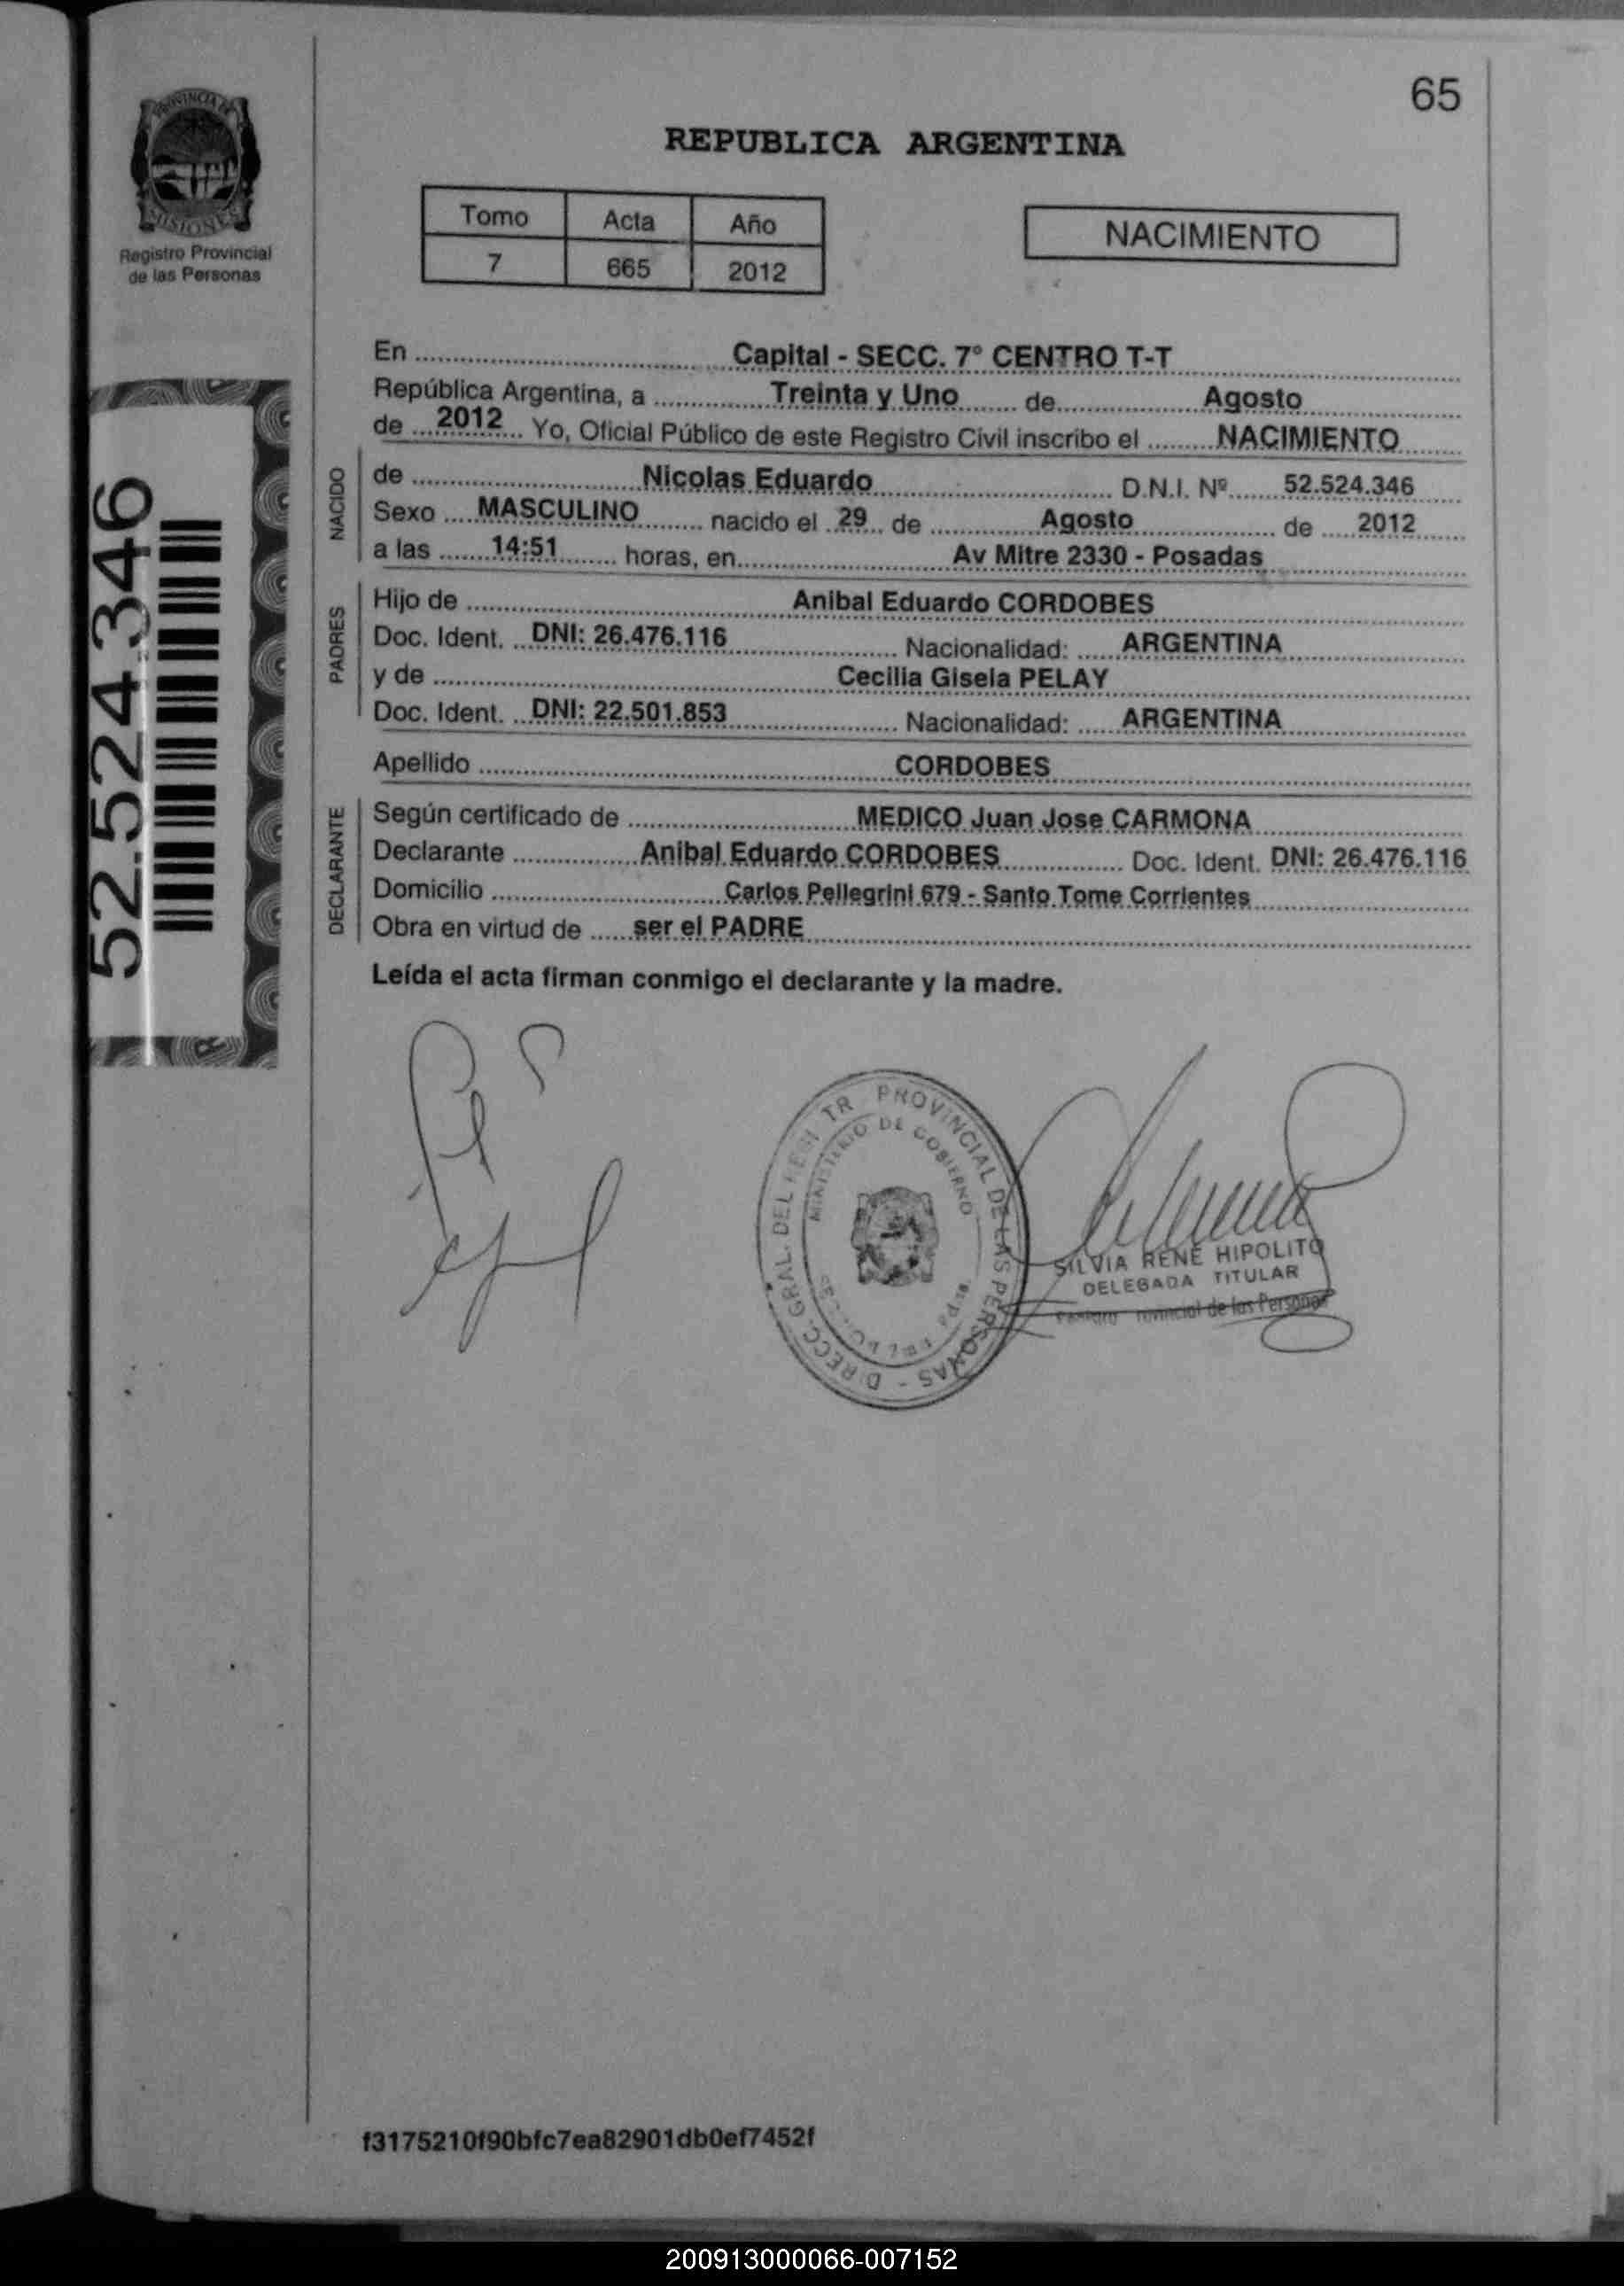 65
PROVINCIA DE
MISIONES
Registro Provincial
de las Personas
REPUBLICA ARGENTINA
Tomo Acta Año
7 665 2012
NACIMIENTO
52.524.346
En Capital - SECC. 7° CENTRO T-T
República Argentina, a Treinta y Uno de Agosto
de 2012 Yo, Oficial Público de este Registro Civil inscribo el NACIMIENTO
NACIDO
de Nicolas Eduardo D.N.I. Nº 52.524.346
Sexo MASCULINO nacido el 29 de Agosto de 2012
a las 14:51 horas, en Av Mitre 2330 - Posadas
PADRES
Hijo de Anibal Eduardo CORDOBES
Doc. Ident. DNI: 26.476.116 Nacionalidad: ARGENTINA
y de Cecilia Gisela PELAY
Doc. Ident. DNI: 22.501.853 Nacionalidad: ARGENTINA
Apellido CORDOBES
DECLARANTE
Según certificado de MEDICO Juan Jose CARMONA
Declarante Anibal Eduardo CORDOBES Doc. Ident. DNI: 26.476.116
Domicilio Carlos Pellegrini 679 - Santo Tome Corrientes
Obra en virtud de ser el PADRE
Leída el acta firman conmigo el declarante y la madre.
PROVINCIAL DE LAS PERSONAS - DIRECC. GRAL. DEL
MINISTERIO DE GOBIERNO
SILVIA RENE HIPOLITO
DELEGADA TITULAR
de las Personas
f3175210f90bfc7ea82901db0ef7452f
200913000066-007152